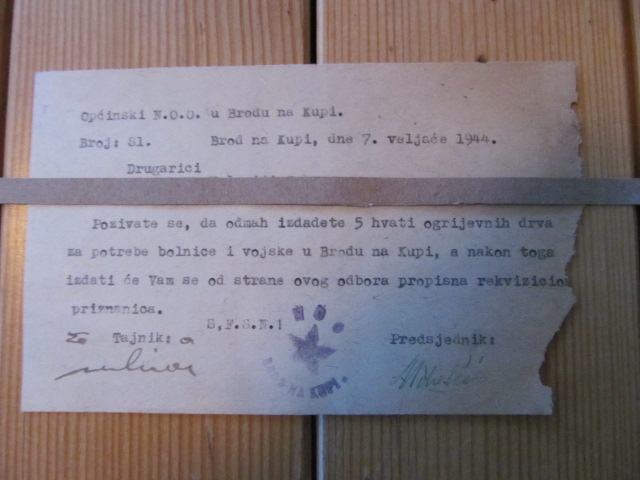 Općinski N.O.O. u Brodu na Kupi.
Broj: 81. Brod na Kupi, dne 7. veljače 1944.
Drugarici
Pozivate se, da odmah izdadete 5 hvati ogrijevnih drva
za potrebe bolnice i vojske u Brodu na Kupi, a nakon toga
izdati će Vam se od strane ovog odbora propisna rekvizicion
priznanica.
S,F.S.N.!
Za Tajnik: a Predsjednik:
NA KUPI